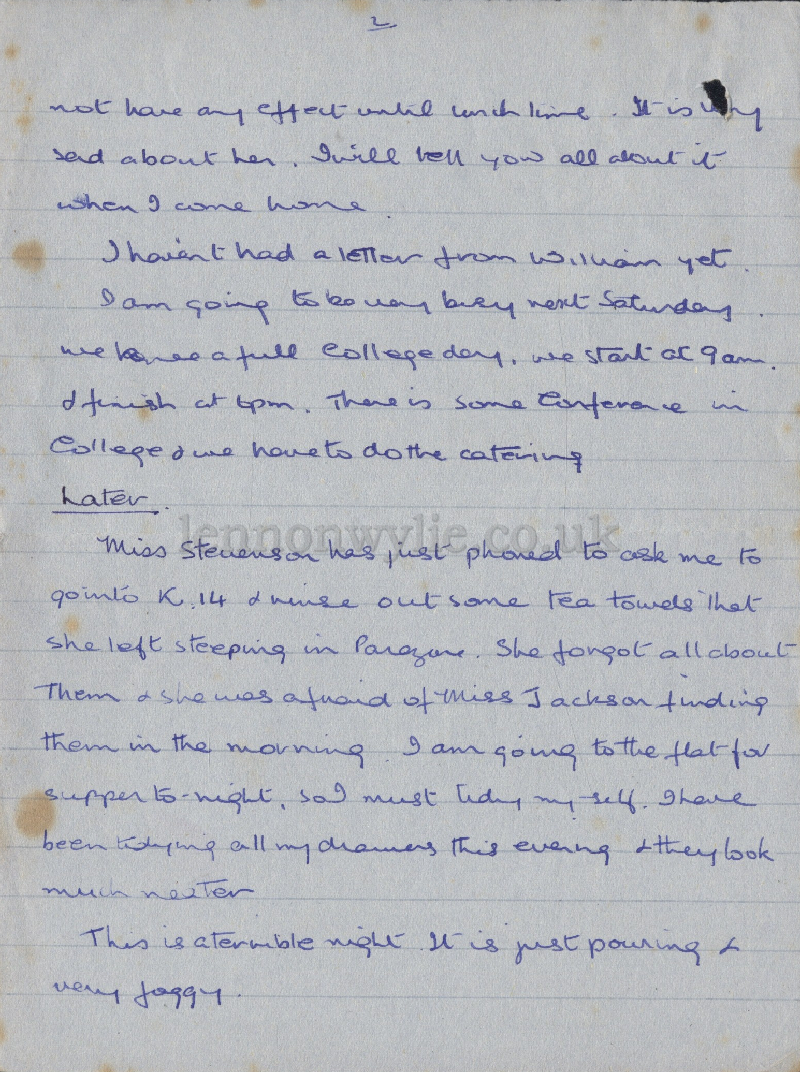 2
not have any effect until lunch time. It is very
sad about her. I will tell you all about it
when I come home.
I haven't had a letter from William yet.
I am going to be very busy next Saturday.
we have a full College day, we start at 9am.
& finish at 6pm. There is some Conference in
College & we have to do the catering
Later.
lennonwylie.co.uk
Miss Stevenson has just phoned to ask me to
go into K.14 & rinse out some tea towels that
she left steeping in Parozone. She forgot all about
them & she was afraid of Miss Jackson finding
them in the morning. I am going to the flat for
supper to-night, so I must tidy my-self. I have
been tidying all my drawers this evening & they look
much neater
This is a terrible night. It is just pouring &
very foggy.